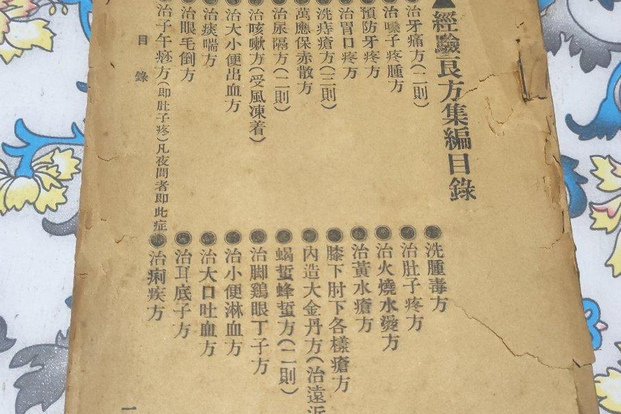 ▲經驗良方集編目錄
治牙痛方(二則)
治嗓子疼腫方
預防牙疼方
治胃口疼方
洗痔瘡方(三則)
萬應保赤散方
治尿隔方(二則)
治咳嗽方(受風凍着)
治大小便出血方
治痰喘方
治眼毛倒方
治子午痧方(即肚子疼)凡夜間者即此症
洗腫毒方
治肚子疼方
治火燒水燙方
治黃水瘡方
膝下肘下各樣瘡方
內造大金丹方(治遠近
蝎蜇蜂蜇方(二則)
治脚鷄眼丁子方
治小便淋血方
治大口吐血方
治耳底子方
治痢疾方
目錄
一